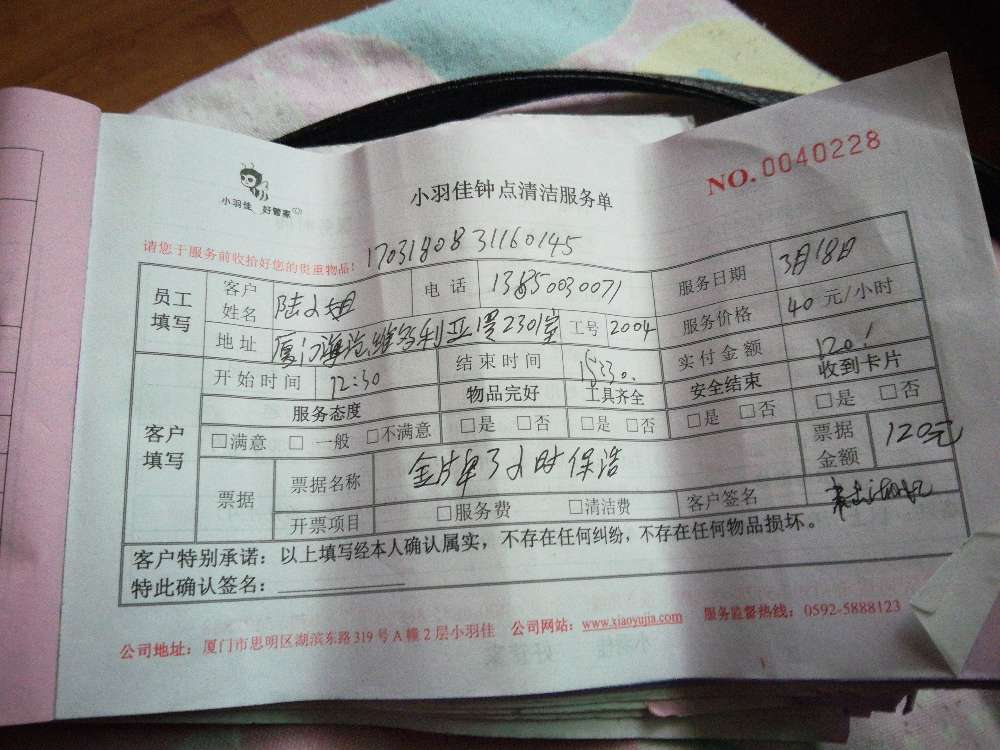 小羽佳 好管家
小羽佳钟点清洁服务单
NO.0040228
请您于服务前收拾好您的贵重物品!
17031808 31160145
员工填写 客户姓名 陆小姐 电话 13850030071 服务日期 3月18日
地址 厦门海沧维多利亚港2301室 工号 2004 服务价格 40元/小时
客户填写 开始时间 12:30 结束时间 15:30. 实付金额 120!
服务态度 物品完好 工具齐全 安全结束 收到卡片
□满意 □一般 □不满意 □是 □否 □是 □否 □是 □否 □是 □否
票据 票据名称 金片单3小时保洁 票据金额 120元
开票项目 □服务费 □清洁费 客户签名
客户特别承诺:以上填写经本人确认属实,不存在任何纠纷,不存在任何物品损坏。
特此确认签名:
公司地址:厦门市思明区湖滨东路319号A幢2层小羽佳 公司网站:www.xiaoyujia.com 服务监督热线:0592-5888123
1